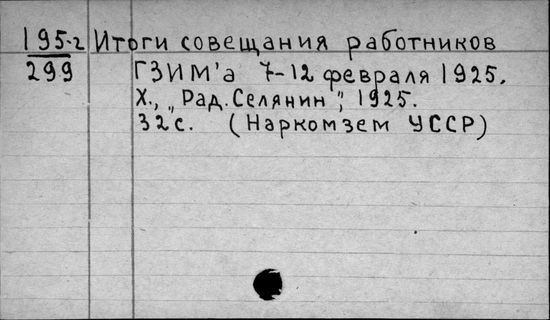 195-г Итоги совещания работников
299 ГЗИМ'а 7-12 февраля 1925.
Х., „Рад. Селянин", 1925.
32 с. (Наркомзем УССР)